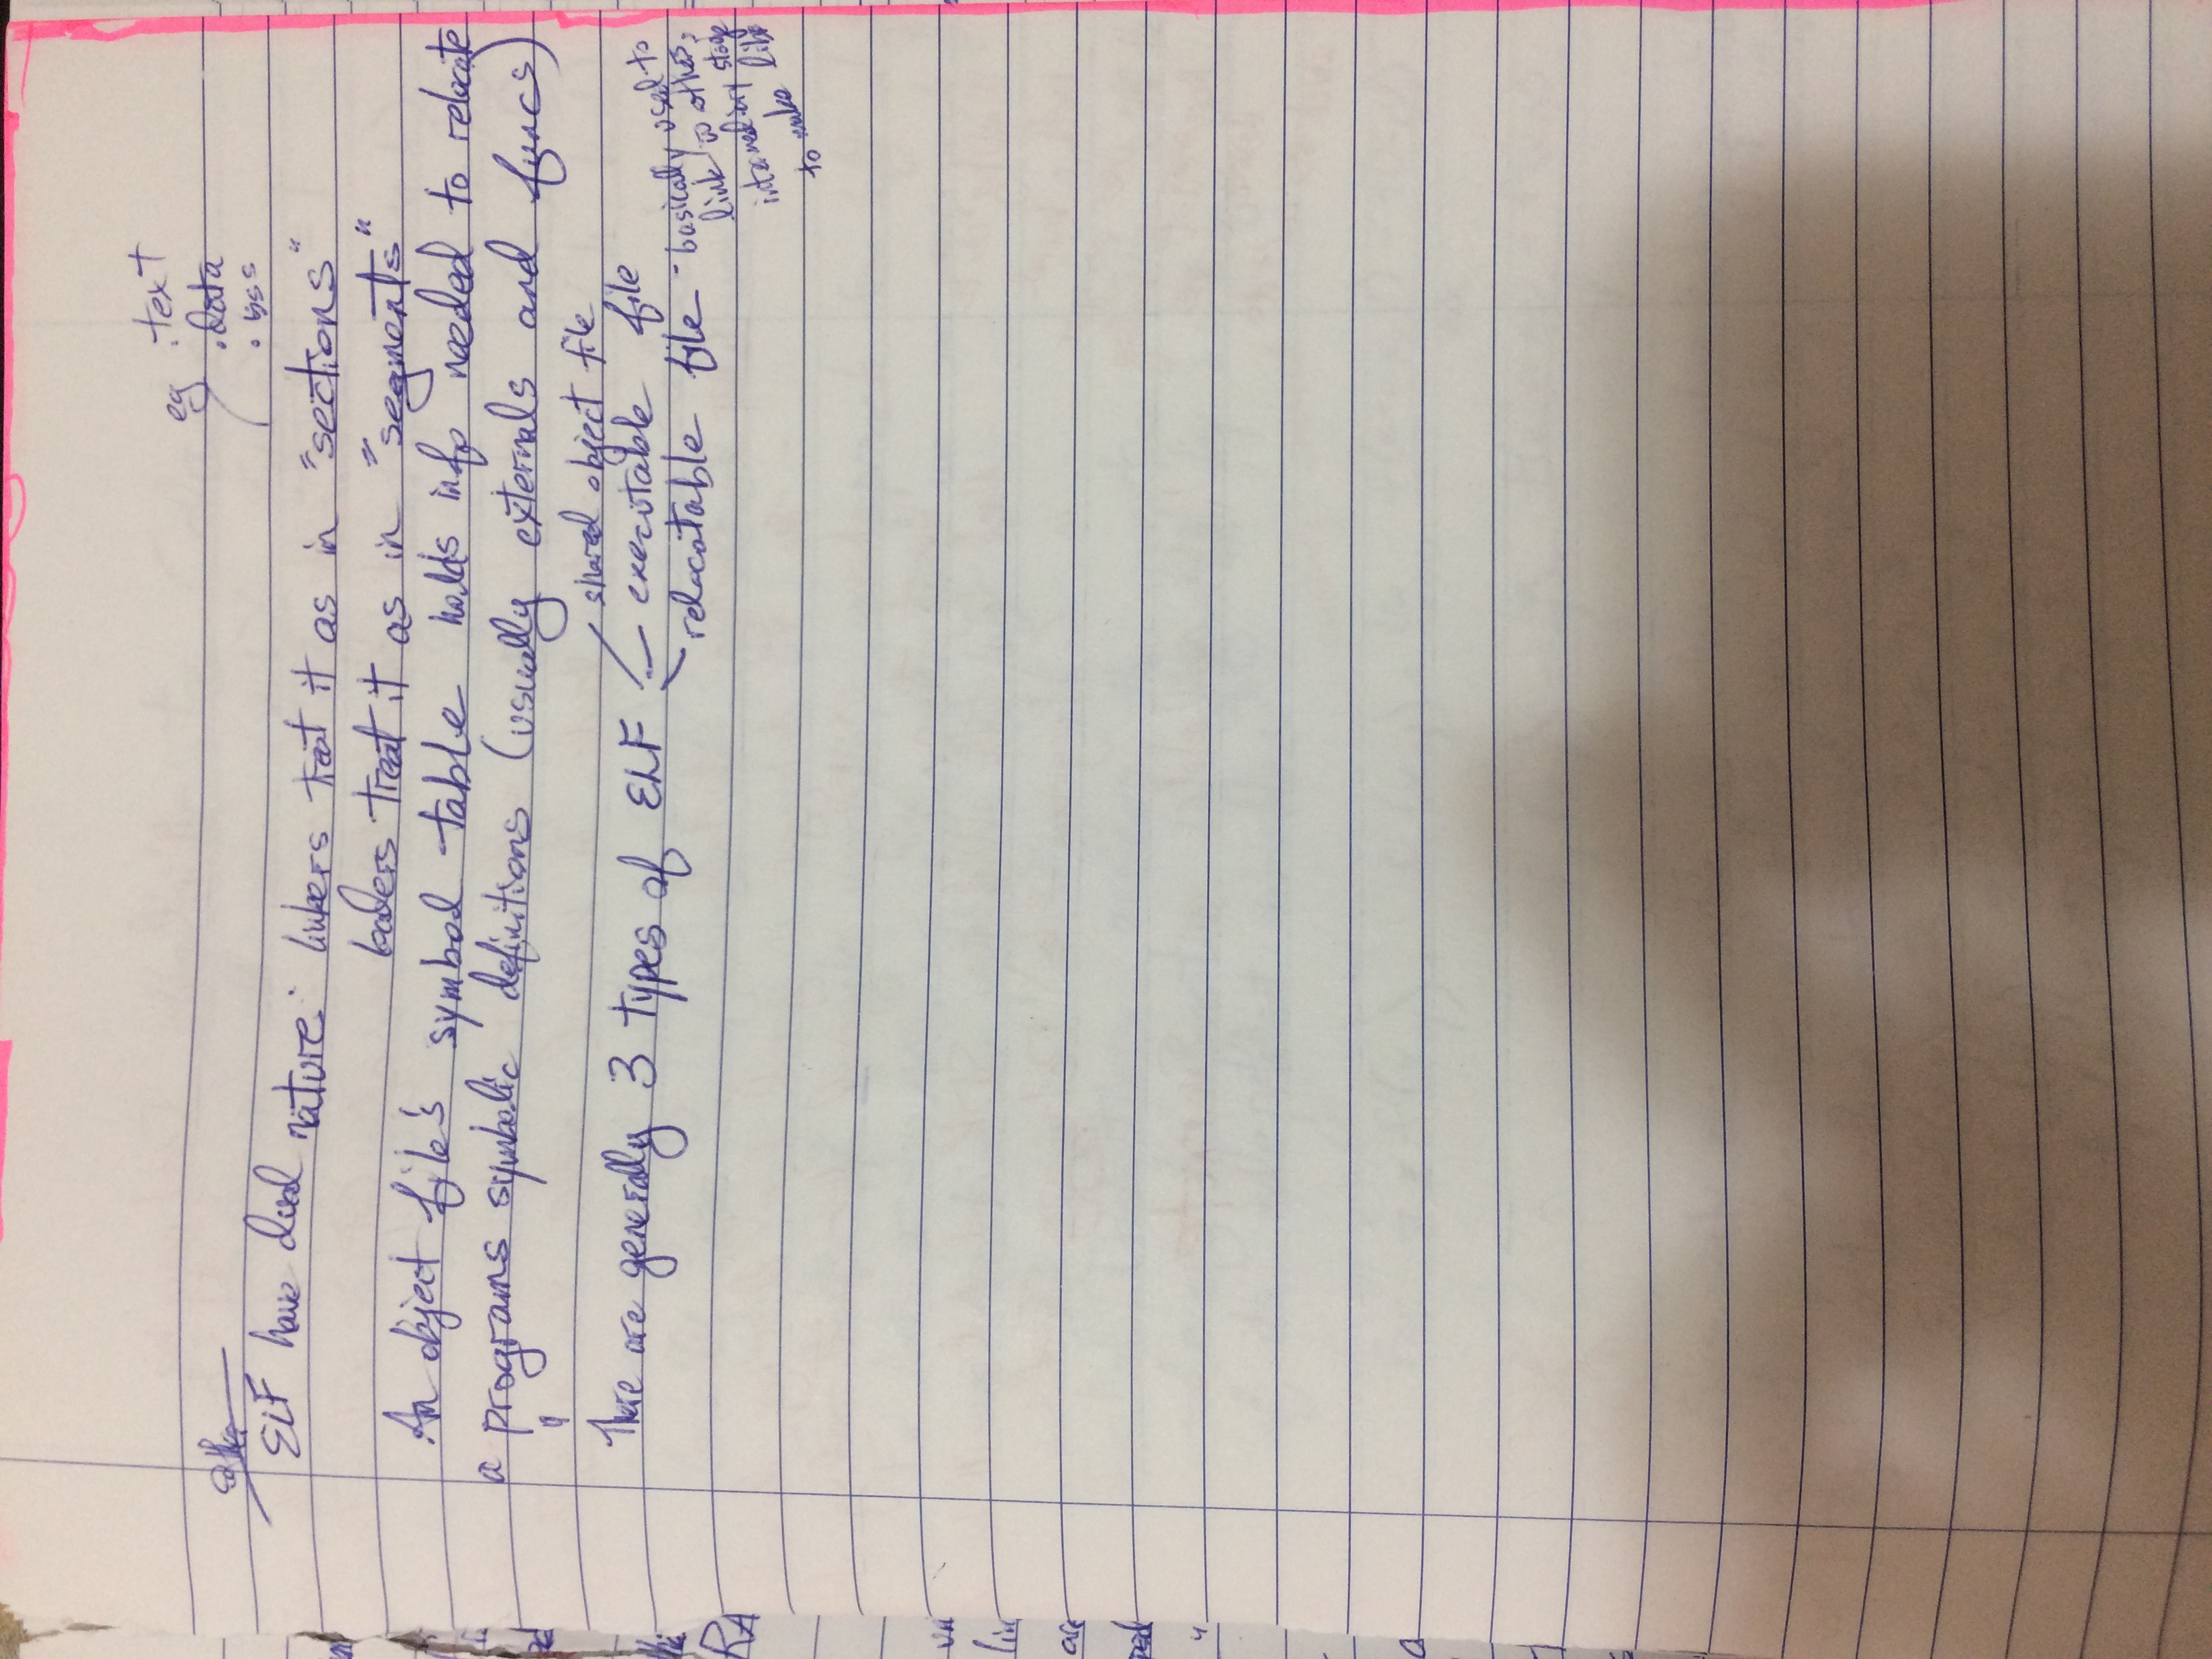 eg .text
.data
.bss
ELF have dual nature: linkers treat it as in "sections"
loaders treat it as in "segments"
An object file's symbol table holds info needed to relocate
a programs symbolic definitions (usually externals and funcs)
There are generally 3 types of ELF
shared object file
executable file
relocatable file - basically used to
link w others,
intermediary stage
to make libs
RA
lin
are